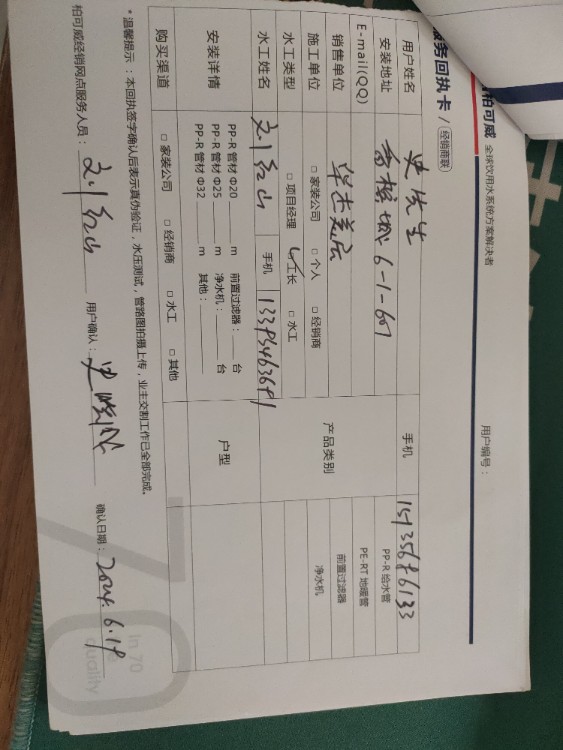 柏可威 全球饮用水系统方案解决者
用户编号：
服务回执卡 / 经销商联
用户姓名 史先生 手机 15135686133
安装地址 6-1-601
E-mail(QQ) 产品类别 PP-R 给水管
销售单位 华杰美居 PE-RT 地暖管
施工单位 □ 家装公司 □ 个人 □ 经销商 前置过滤器
水工类型 □ 项目经理 ✓ 工长 □ 水工 净水机
水工姓名 刘红山 手机
安装详情 PP-R 管材 Φ20 m 前置过滤器： 台 户型
PP-R 管材 Φ25 m 净水机： 台
PP-R 管材 Φ32 m 其他：
购买渠道 □ 家装公司 □ 经销商 □ 水工 □ 其他
* 温馨提示：本回执签字确认后表示真伪验证，水压测试，管路图拍摄上传，业主交割工作已全部完成。
柏可威经销网点服务人员： 刘红山 用户确认： 确认日期： 2024.6.19
In 70
quality